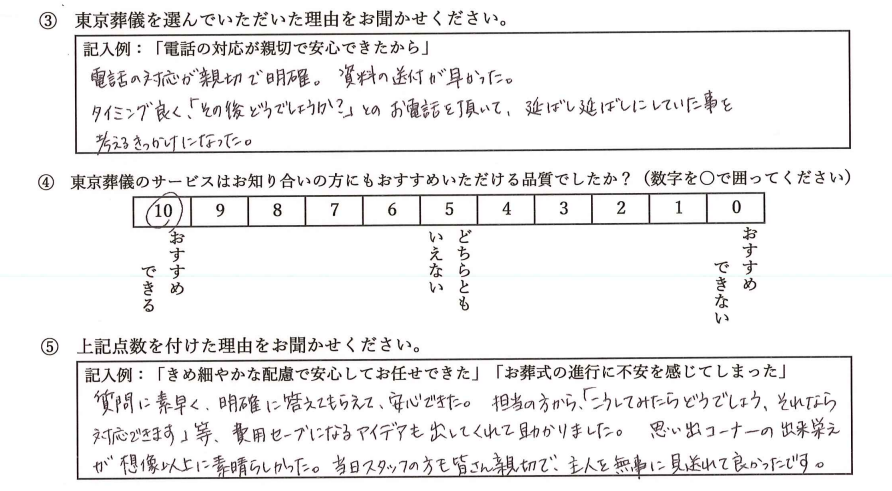 ③ 東京葬儀を選んでいただいた理由をお聞かせください。
記入例：「電話の対応が親切で安心できたから」
電話の対応が親切で明確。資料の送付が早かった。
タイミング良く、「その後どうでしょうか？」とのお電話を頂いて、延ばし延ばしにしていた事を
考えるきっかけになった。
④ 東京葬儀のサービスはお知り合いの方にもおすすめいただける品質でしたか？（数字を〇で囲ってください）
10 9 8 7 6 5 4 3 2 1 0
おすすめできる
どちらともいえない
おすすめできない
⑤ 上記点数を付けた理由をお聞かせください。
記入例：「きめ細やかな配慮で安心してお任せできた」「お葬式の進行に不安を感じてしまった」
質問に素早く、明確に答えてもらえて、安心できた。担当の方から、「こうしてみたらどうでしょう、それなら
対応できます」等、費用セーブになるアイデアも出してくれて助かりました。思い出コーナーの出来栄え
が想像以上に素晴らしかった。当日スタッフの方も皆さん親切で、主人を無事に見送れて良かったです。